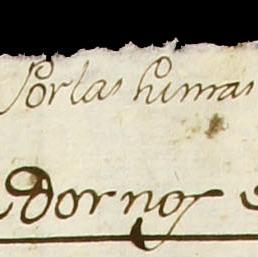 Por las humas
dornos